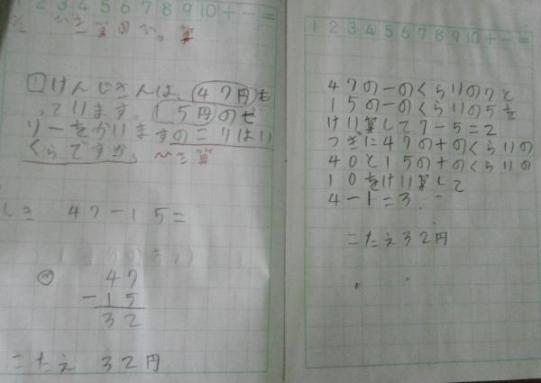 2 3 4 5 6 7 8 9 10 + - =
1 けんじさんは、47円も
っています。15円のゼ
リーをかいますのこりはい
くらですか。
しき 47-15=
47
-15
32
こたえ 32円
1 2 3 4 5 6 7 8 9 10 + - =
47の一のくらいの7と
15の一のくらいの5を
けい算して7-5=2
つぎに47の十のくらいの
40と15の十のくらいの
10をけい算して
4-1=3
こたえ32円